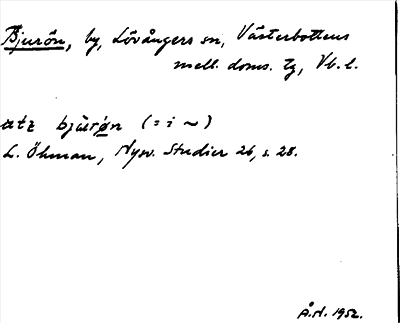 Bjurön, by, Lövångers sn, Västerbottens
mell. doms. tg, Vb. l.
ɑtɛ bjúrøn (: i ~)
L. Öhman, Nysv. Studier 26, s. 28.
Å.H. 1952.